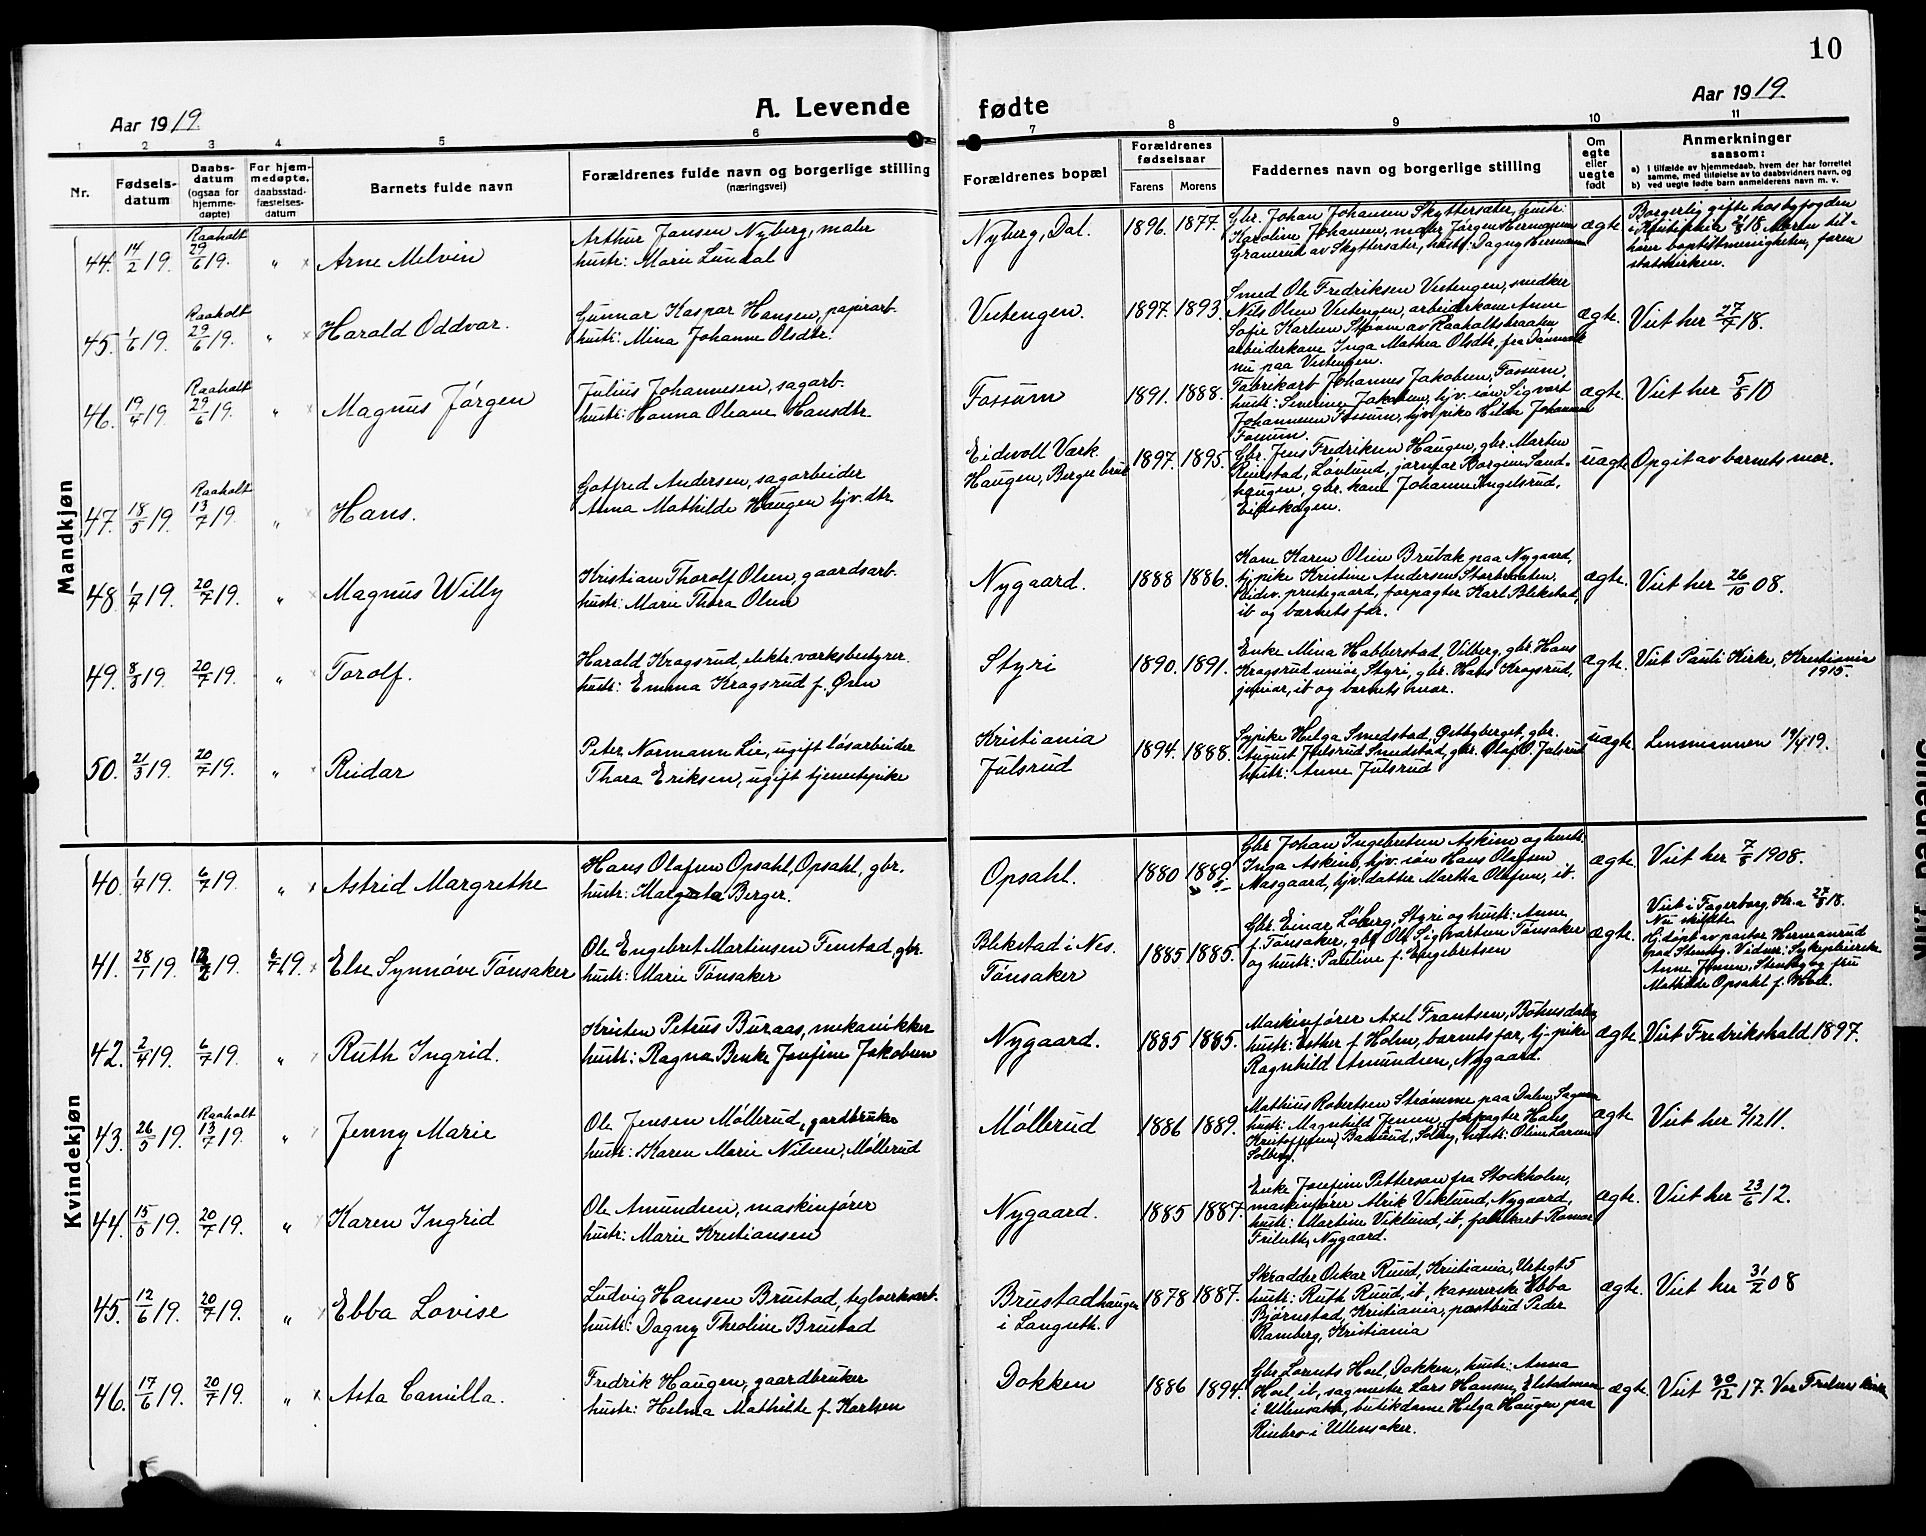 10
Aar 1919.
A. Levende
fødte
Aar 1919.
1 2 3 4 5 6 7 8 9 10 11
Nr.
Fødsels-
datum
Daabs-
datum
(ogsaa for
hjemme-
døpte)
For hjem-
medøpte,
daabsstad-
fæstelses-
datum
Barnets fulde navn
Forældrenes fulde navn og borgerlige stilling
(næringsvei)
Forældrenes bopæl
Forældrenes
fødselsaar
Farens
Morens
Faddernes navn og borgerlige stilling
Om
egte
eller
uegte
født
Anmerkninger
saasom:
a) I tilfælde av hjemmedaab, hvem der har forrettet
samme, med tilføielse av to daabsvidners navn, og
b) ved uegte fødte barn anmelderens navn m. v.
Mandkjøn
44. 14/2 19. Raaholt 29/6 19. " Arne Melvin
Arthur Jansen Nyberg, maler
hustr: Marie Lundal
Nyberg, Dal. 1896. 1877.
Gbr. Johan Johansen Skyttersæter, hustr:
Karoline Johansen, maler Jørgen Hermansen
Granerud av Skyttersæter, hustr: Dagny Hermansen
ægte
Borgerlig gifte hos byfogden
i Kristiania 21/8 18. Moren til-
hører baptistmenigheten, faren
statskirken.
45. 1/6 19. Raaholt 29/6 19. " Harald Oddvar.
Gunnar Kaspar Hansen, papirarb.
hustr: Mina Johanne Olsdtr.
Vestengen. 1897. 1893.
Smed Ole Fredriksen Vestengen, snedker
Nils Olsen Vestengen, arbeiderkone Anne
Sofie Karlsen Strøm av Raaholtsbraaten
arbeiderkone Inga Mathea Olsdtr, fra Danmark
nu paa Vestengen.
ægte. Viet her 27/7 18.
46. 19/4 19. Raaholt 29/6 19. " Magnus Jørgen
Julius Johannesen, sagarb.
hustr: Hanna Oleane Hansdtr.
Fossum 1891. 1888.
Fabrikarb. Johannes Jakobsen, Fossum,
hustr: Severine Jakobsen, hjv. søn Sigvart
Johannesen Fossum, hjv. pike Hilda Johannesen
Fossum.
ægte. Viet her 5/5 10
47. 18/5 19. Raaholt 13/7 19. " Hans.
Gotfred Andersen, sagarbeider
Anna Mathilde Haugen hjv. dtr.
Eidsvoll Værk
Haugen, Berger bruk 1897. 1895.
Gbr. Jens Fredriksen Haugen, gbr. Marten
Reierstad, Løvlund, jornfar Borgen Sand-
haugen, gbr. kone Johanne Ingelsrud,
Eidskogen.
uægte Opgit av barnets mor.
48. 1/4 19. 20/7 19. " Magnus Willy
Kristian Thorolf Olsen, gaardsarb.
hustr: Marie Thora Olsen
Nygaard. 1888 1886.
Kone Karen Olsen Brubak paa Nygaard,
tj. pike Kristine Andersen Storbraaten,
Eidsv. prestegaard, forpagter Karl Blekstad,
ib og barnets far.
ægte. Viet her 26/10 08.
49. 8/3 19. 20/7 19. " Torolf.
Harald Kragsrud, elektr. værksbestyrer
hustr: Emma Kragsrud f. Øren
Styri 1890. 1891.
Enke Mina Habberstad, Vilberg, gbr. Hans
Kragsrud senior, Styri, gbr. Hans Kragsrud,
junior, ib og barnets mor.
ægte. Viet Pauli Kirke, Kristiania
1915.
50. 21/3 19. 20/7 19. " Reidar
Peter Normann Lie, ugift løsarbeider
Thora Eriksen, ugift tjenestepike
Kristiania
Julsrud 1894. 1888.
Sypike Helga Smedstad, Gettyberget, gbr.
August Julsrud Smedstad, gbr. Olaf O. Julsrud
hustr: Anne Julsrud
uægte Lensmannen 19/4 19.
Kvindekjøn
40. 1/4 19. 6/7 19. " Astrid Margrethe
Hans Olafsen Opsahl, Opsahl, gbr.
hustr: Margrete Berger.
Opsahl. 1880 1889
Gbr. Johan Ingebretsen Askim og hustr:
Inga Askim, hjv. søn Hans Olafsen
Masgaard, hjv. datter Martha Olafsen, ib.
ægte. Viet her 7/5 1908.
41. 28/1 19. 12/2 19. 6/7 19. Else Synnøve Tønsaker
Ole Engebret Martinsen Fenstad, gbr.
hustr: Marie Tønsaker
Blekstad i Nes.
Tønsaker 1885 1885.
Gbr. Einar Løberg, Styri og hustr: Anne
f. Tønsaker, gbr. Ole Sigvartsen Tønsaker
og hustr: Pauline f. Engebretsen
ægte.
Viet i Fagerborg, Kr.a 27/8 18.
Nu skilte
Hj. døpt av pastor Hermanrud
paa Stensby. Vidner: Sykepleierske
Anne Jensen, Stensby og fru
Mathilde Opsahl f. Hoel.
42. 2/4 19. 6/7 19. " Ruth Ingrid.
Kristen Petrus Buraas, mekanikker
hustr: Ragna Benke Josefine Jakobsen
Nygaard. 1885 1885.
Maskinfører Axel Frantsen, Bøhnsdalen,
hustr: Esther f. Holm, barnets far, tj. pike
Ragnhild Amundsen, Nygaard.
ægte Viet Fredrikshald 1897.
43. 26/5 19. Raaholt 13/7 19. " Jenny Marie
Ole Jensen Møllerud, gardbruker
hustr: Karen Marie Nilsen, Møllerud
Møllerud 1886 1889.
Mathius Robertsen Strømme paa Dalen, Sagmoen
hustr: Magnhild Jensen, forpagter Hans
Kristoffersen, Baarud, Solby, hustr: Oline Larsen
Solberg.
ægte Viet her 2/12 11.
44. 15/5 19. 20/7 19. " Karen Ingrid
Ole Amundsen, maskinfører
hustr: Marie Kristiansen
Nygaard. 1885 1887.
Enke Josefine Petterson fra Stockholm,
maskinfører Alrik Viklund, Nygaard,
hustr: Martine Viklund, ib, fabrikarb. Ramar
Friluth, Nygaard.
ægte. Viet her 23/6 12.
45. 12/6 19. 20/7 19. " Ebba Lovise
Ludvig Hansen Brustad, teglverksarb.
hustr: Dagny Theoline Brustad
Brustadhaugen
i Langseth. 1878 1887.
Skrædder Oskar Ruud, Kristiania, Urtegt 5
hustr: Ruth Ruud, ib, kasererske Ebba
Bjørnstad, Kristiania, postbud Peder
Ramberg, Kristiania
ægte. Viet her 31/7 08
46. 17/6 19. 20/7 19. " Asta Camilla.
Fredrik Haugen, gaardbruker
hustr: Helma Mathilde f. Karlsen
Dokken 1886 1894.
Gbr. Lorents Hoel, Dokken, hustr: Anna
Hoel, ib, sagmester Lars Hansen,
i Ullensaker, butikdame Helga Haugen paa
Risebro i Ullensaker.
ægte. Viet 30/12 17. Vor Frelsers kirke